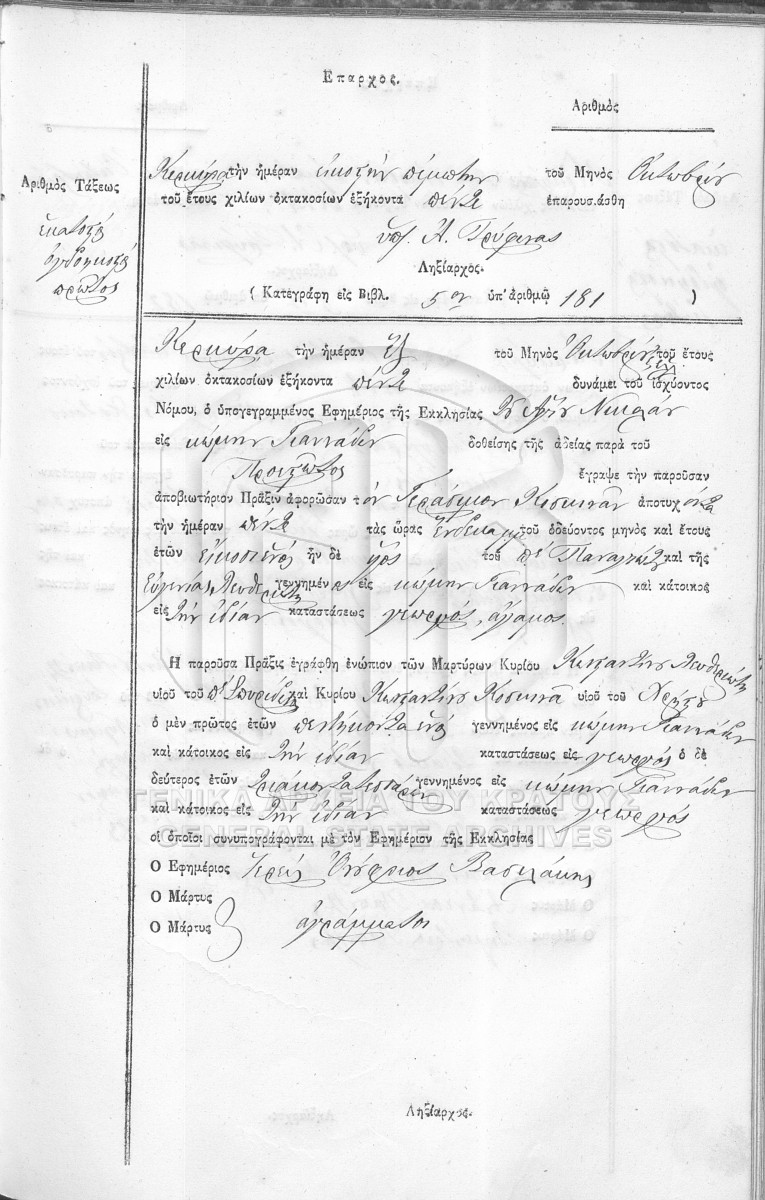 Ἔπαρχος.
Ἀριθμὸς
Ἀριθμὸς Τάξεως
ἑκατοστὸς
ὀγδοηκοστὸς
πρῶτος
Κερκύρα τὴν ἡμέραν εἰκοστὴν πέμπτην τοῦ Μηνὸς Ὀκτωβρίου
τοῦ ἔτους χιλίων ὀκτακοσίων ἑξήκοντα πέντε ἐπαρουσιάσθη
Ληξίαρχος.
( Κατεγράφη εἰς Βιβλ. 5ον ὑπ' ἀριθμῷ 181 )
Κερκύρα τὴν ἡμέραν ἓξ τοῦ Μηνὸς Ὀκτωβρίου τοῦ ἔτους
χιλίων ὀκτακοσίων ἑξήκοντα πέντε δυνάμει τοῦ ἰσχύοντος
Νόμου, ὁ ὑπογεγραμμένος Ἐφημέριος τῆς Ἐκκλησίας τοῦ Ἁγίου Νικολάου
εἰς κώμην Γιαννάδων δοθείσης τῆς ἀδείας παρὰ τοῦ
Προεστῶτος ἔγραψε τὴν παροῦσαν
ἀποβιωτήριον Πρᾶξιν ἀφορῶσαν τὸν Γεράσιμον Κοσκινᾶν ἀποτυχόντα
τὴν ἡμέραν πέντε τὰς ὥρας ἕνδεκα τοῦ ὁδεύοντος μηνὸς καὶ ἔτους
ἐτῶν εἰκοσιενὸς ἦν δὲ υἱὸς τοῦ Παναγιώτου καὶ τῆς
Εὐγενίας Λευθεριώτη γεννημένος εἰς κώμην Γιαννάδων καὶ κάτοικος
εἰς τὴν ἰδίαν καταστάσεως γεωργός, ἄγαμος.
Ἡ παροῦσα Πρᾶξις ἐγράφθη ἐνώπιον τῶν Μαρτύρων Κυρίου Κωνσταντίνου Λευθεριώτη
υἱοῦ τοῦ π. Σπυρίδων καὶ Κυρίου Κωνσταντίνου Κοσκινᾶ υἱοῦ τοῦ Χρήστου
ὁ μὲν πρῶτος ἐτῶν πεντήκοντα ἑνὸς γεννημένος εἰς κώμην Γιαννάδων
καὶ κάτοικος εἰς τὴν ἰδίαν καταστάσεως εἰς γεωργὸς ὁ δὲ
δεύτερος ἐτῶν τριάκοντα τεσσάρων γεννημένος εἰς κώμην Γιαννάδων
καὶ κάτοικος εἰς τὴν ἰδίαν καταστάσεως γεωργὸς
οἱ ὁποῖοι συνυπογράφονται μὲ τὸν Ἐφημέριον τῆς Ἐκκλησίας
Ὁ Ἐφημέριος Ἱερεὺς Ὀνούφριος Βασιλάκης
Ὁ Μάρτυς
Ὁ Μάρτυς ἀγράμματοι
Ληξίαρχος.
ΓΕΝΙΚΑ ΑΡΧΕΙΑ ΤΟΥ ΚΡΑΤΟΥΣ
GENERAL STATE ARCHIVES